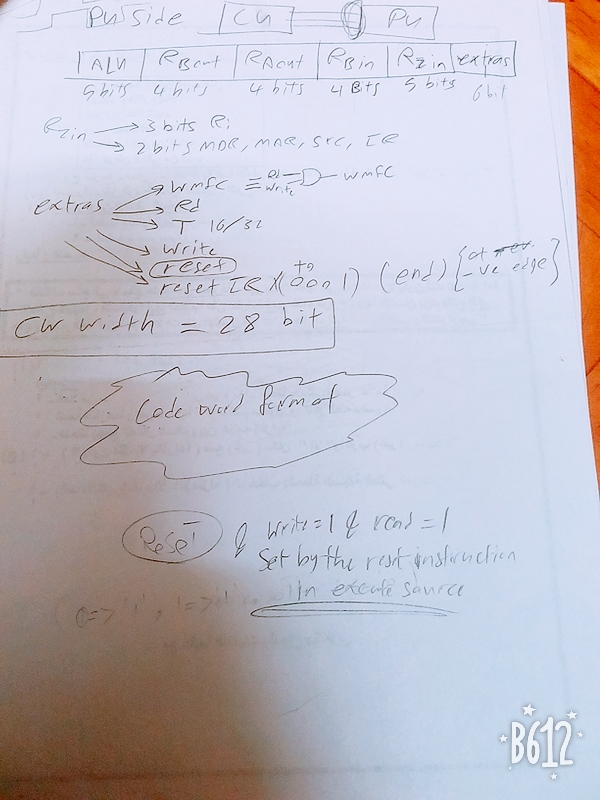 PU side CU PU
ALU RBout RAout RBin Rzin extras
5 bits 4 bits 4 bits 4 Bits 5 bits 6 bit
Rzin → 3 bits Ri
→ 2 bits MDR, MAR, SRC, IR
extras
wmfc ≡ Rd write wmfc
Rd
T 16/32
write
reset
reset IR x(00 to 01) (end) {at -ve edge}
CW width = 28 bit
Code word format
RESET & write=1 & read=1
Set by the reset instruction
in execute source